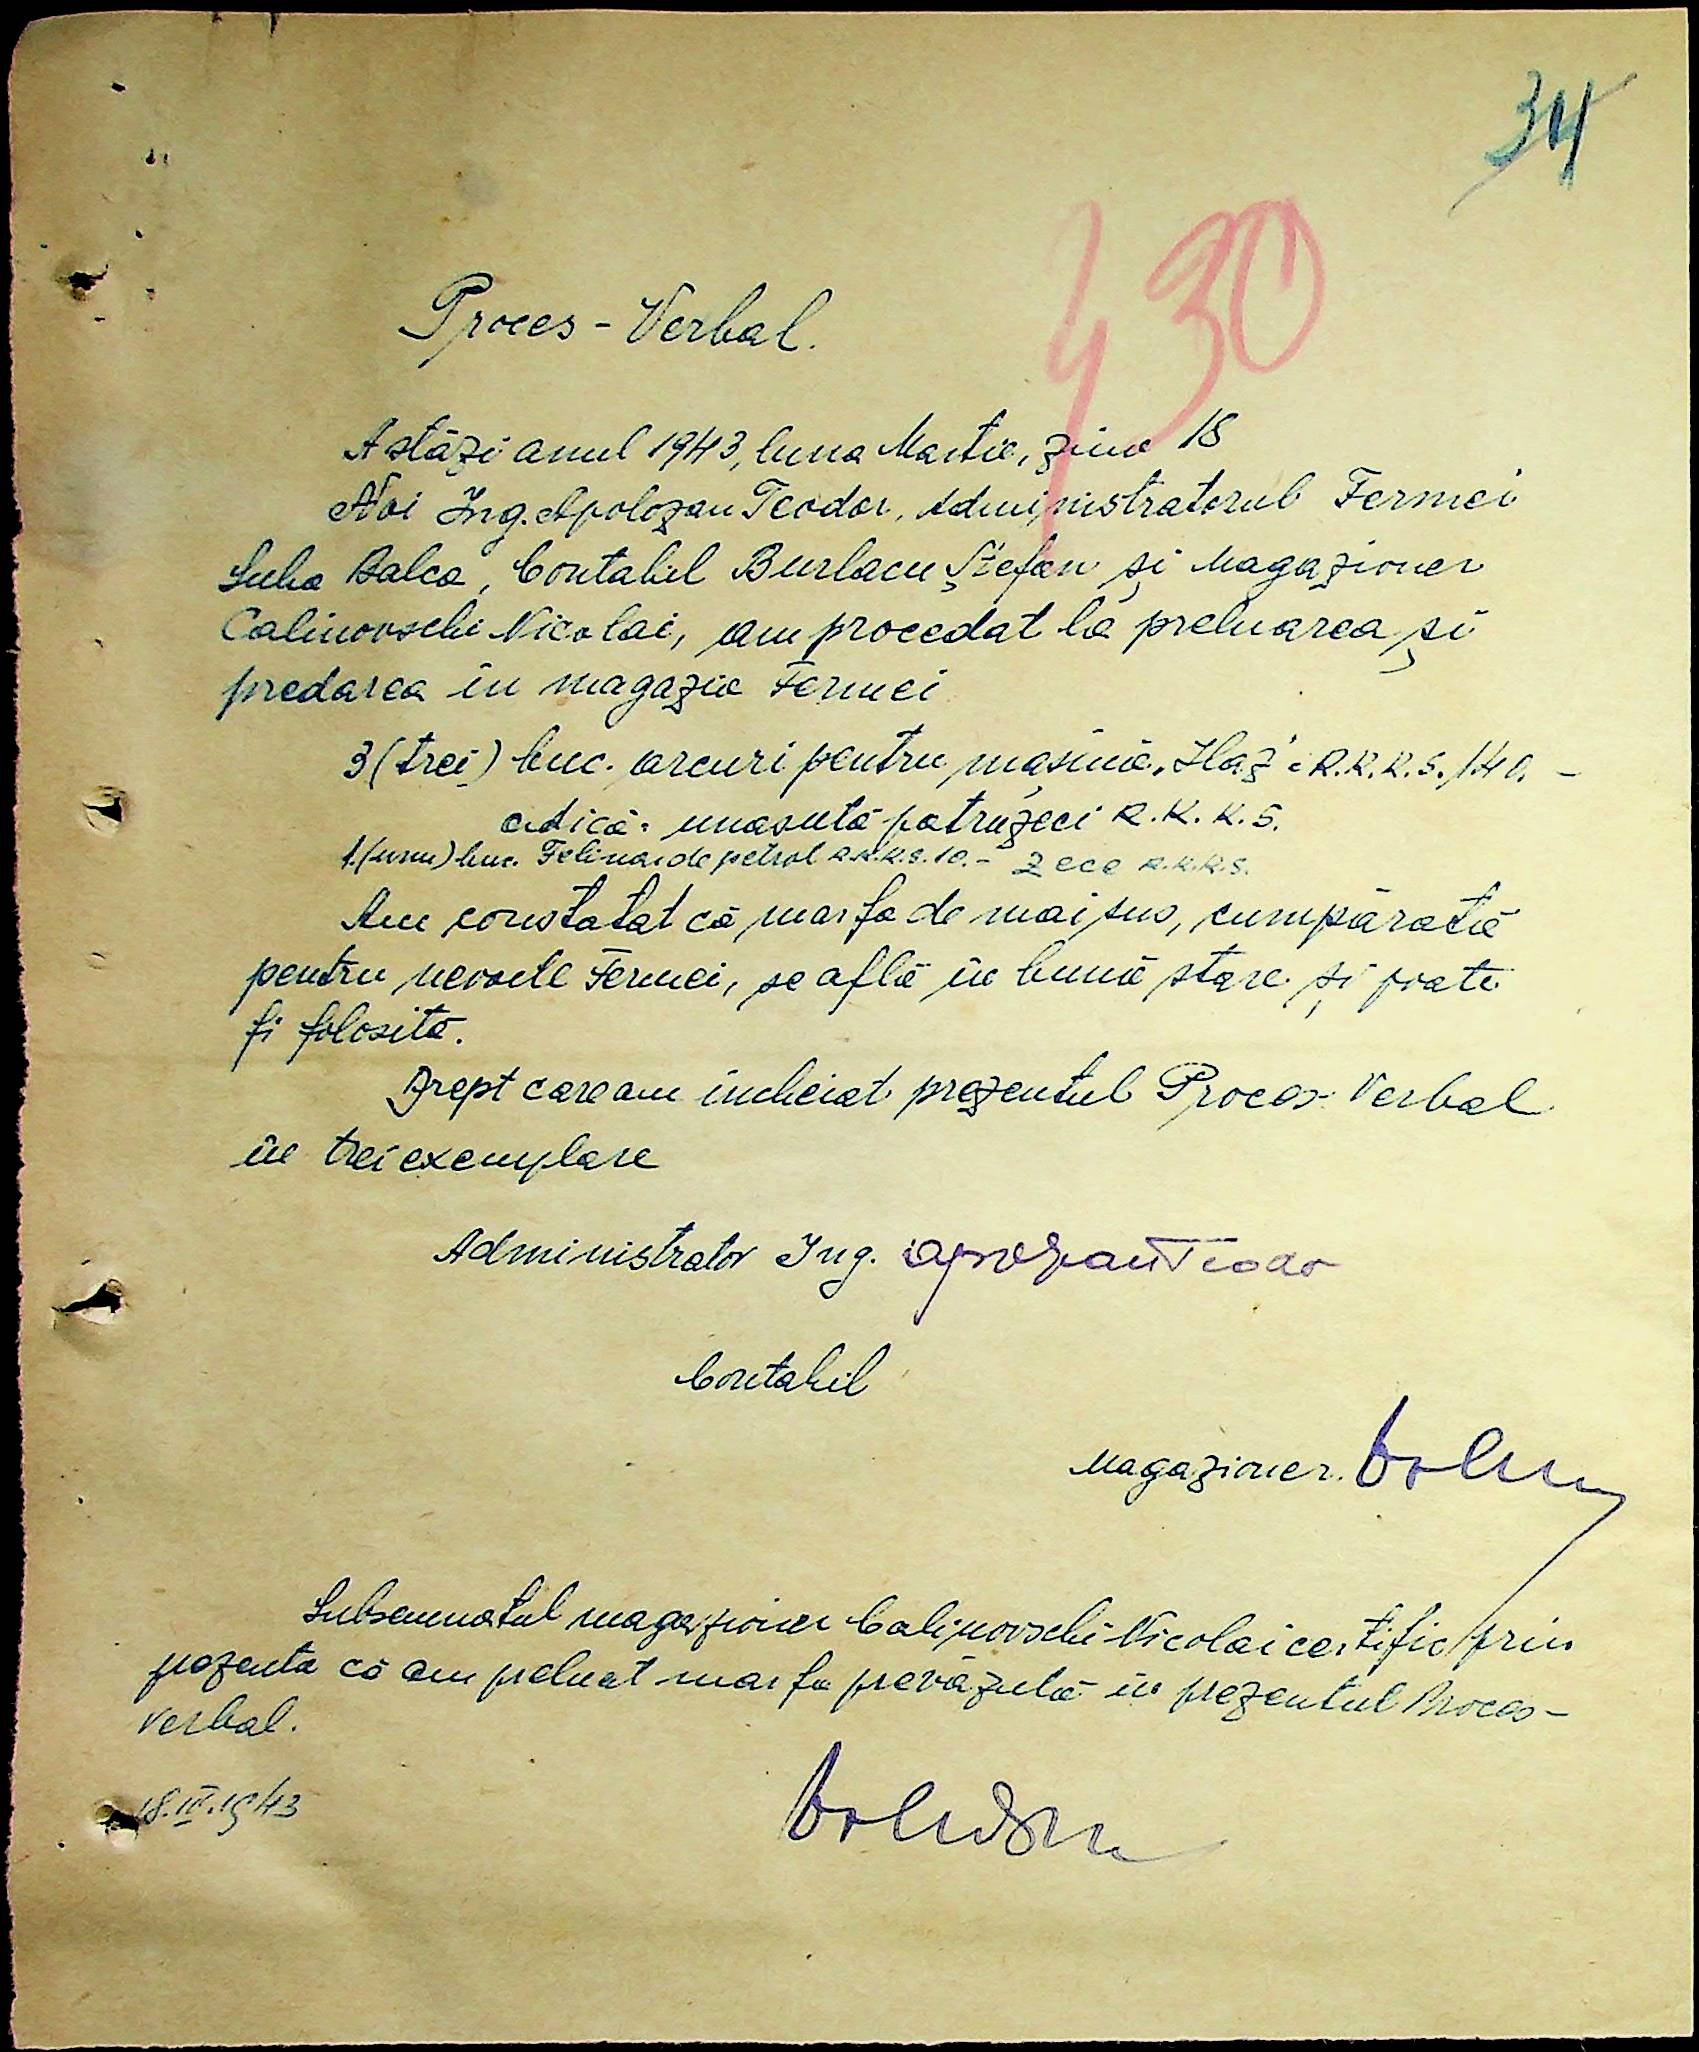 34
430
Proces-Verbal.
Astăzi anul 1943, luna Martie, ziua 18
Noi Ing. Apolozan Teodor, Administratorul Fermei
Suha Balca, Contabil Burlacu Ștefan și Magazioner
Calinovschi Nicolai, am procedat la preluarea și
predarea în magazia Fermei
3 (trei) buc. arcuri pentru mașina R.K.K.S. 140.-
adică: unasută patruzeci R.K.K.S.
1.(unu) buc. Felinar de petrol R.K.K.S. 10.- Zece R.K.K.S.
Am constatat că marfa de mai sus, cumpărată
pentru nevoile Fermei, se află în bună stare și poate
fi folosită.
Drept care am încheiat prezentul Proces-Verbal
în trei exemplare
Administrator Ing. Apolozan Teodor
Contabil
Magazioner.
Subsemnatul magazioner Calinovschi Nicolai certific prin
prezenta că am preluat marfa prevăzută în prezentul Proces-
Verbal.
18.III.1943